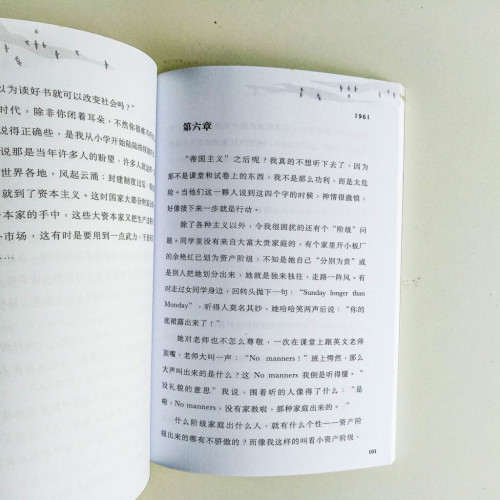 以为读好书就可以改变社会吗？”
时代，除非你闭着耳朵，不然你很难
说得正确些，是我从小学开始陆陆续续
说那是当年许多人的盼望，许多人就
世界各地，风起云涌：封建制度过后
就到了资本主义。这时国家大部分财富
本家的手中，这些大资本家又把生产
外市场，这有时是要用到一点武力，于是
……
1961
第六章
“帝国主义”之后呢？我真的不想听下去了，因为
那不是课堂和试卷上的东西，我不是那么功利，而是太危
险。当他们这一夥人说到这四个字的时候，神情很激愤，
好像接下来一步就是行动。
除了各种主义以外，令我很困扰的还有个“阶级”问
题。同学里没有来自大富大贵家庭的，有个家里开小板厂
的余艳红已划为资产阶级，不知是她自己“分别为贵”或
是别人把她划分出来，她就是独来独往，走路一阵风。有
时走过女同学身边，回转头抛下一句：“Sunday longer than
Monday”，听得人莫名其妙。她哈哈笑两声后说：“你的
底裙露出来了！”
她对老师也不怎么尊敬，一次在课堂上跟英文老师
顶嘴，老师大叫一声：“No manners！”班上愕然，那么
大声叫出来的是什么？这 No manners 我倒是听得懂。“
没礼貌的意思”我说，围着听的人像得了什么：“是
啦，No manners，没有家教啦，那种家庭出来的。”
什么阶级家庭出什么人，就有什么个性——资产阶
级出来的哪有不骄傲的？而像我这样的叫着小资产阶级，
101